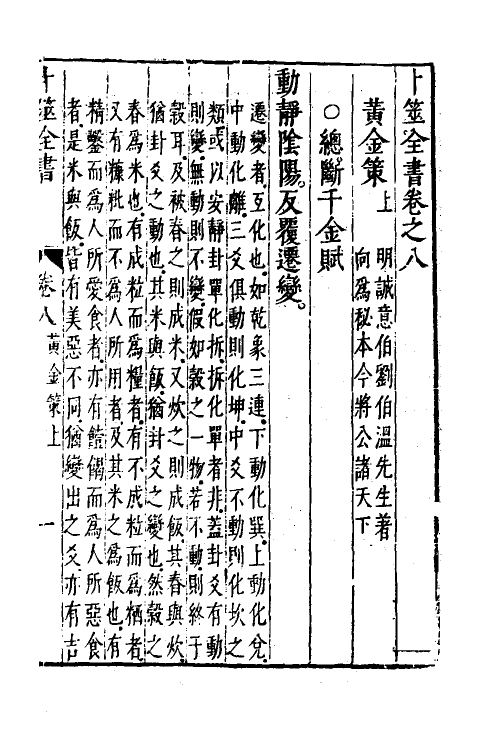 卜筮全書卷之八
黃金策上
明誠意伯劉伯溫先生著
向爲秘本今將公諸天下
○總斷千金賦
動靜陰陽。反覆遷變。
遷變者。互化也。如乾象三連。下動化巽。上動化兌。
中動化離。三爻俱動則化坤。中爻不動則化坎之
類。或以安靜卦單化拆。拆化單者非。蓋卦爻有動
則變。無動則不變。假如穀之一物。若不動。則終于
穀耳。及被舂之則成米。又炊之則成飯。其舂與炊
猶卦爻之動也。其米與飯。猶卦爻之變也。然穀之
舂爲米也。有成粒而爲糧者。有不成粒而爲栖者。
又有糠粃而不爲人所用者。及其米之爲飯也。有
精鑿而爲人所愛食者。亦有饐餲而爲人所惡食
者。是米與飯皆有美惡不同。猶變出之爻。亦有吉
卜筮全書
卷八
黃金策上
一